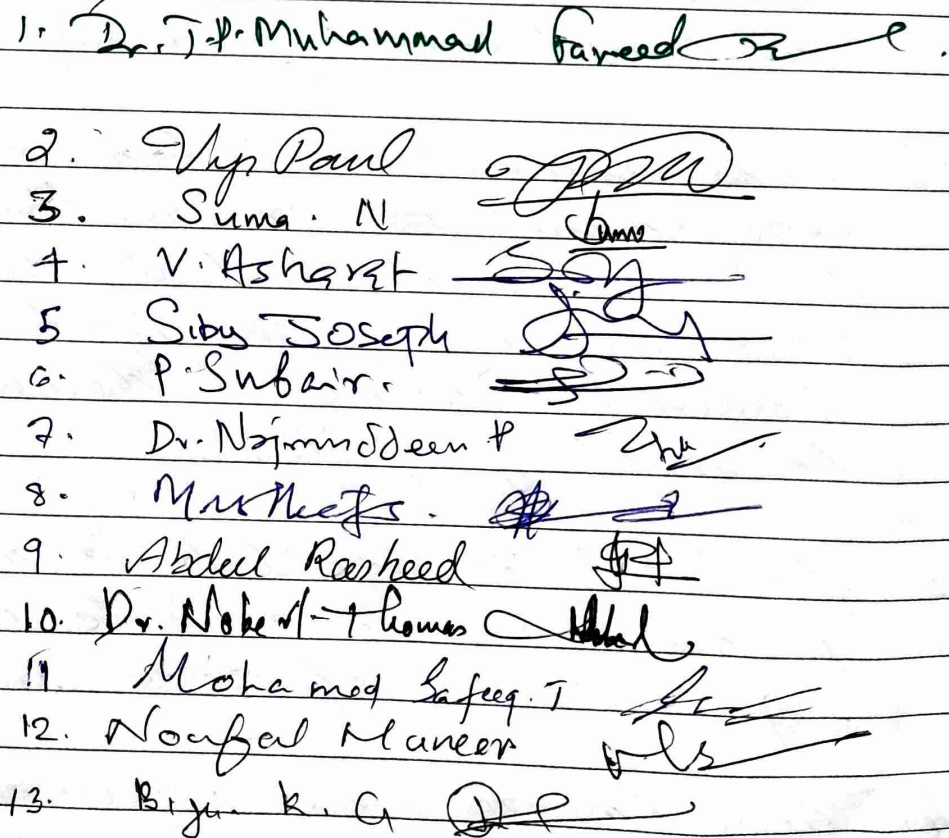 1. Dr. T.P. Muhammad Fareed
2. Paul
3. Suma. N
4. V. Asharaf
5 Siby Joseph
6. P. Subair.
7. Dr. Najmuddeen P
8. Musthafa.
9. Abdul Rasheed
10. Dr. Nobert Thomas
11 Mohamed Safeeq. T
12. Noufal Muneer
13. Biju. K. G